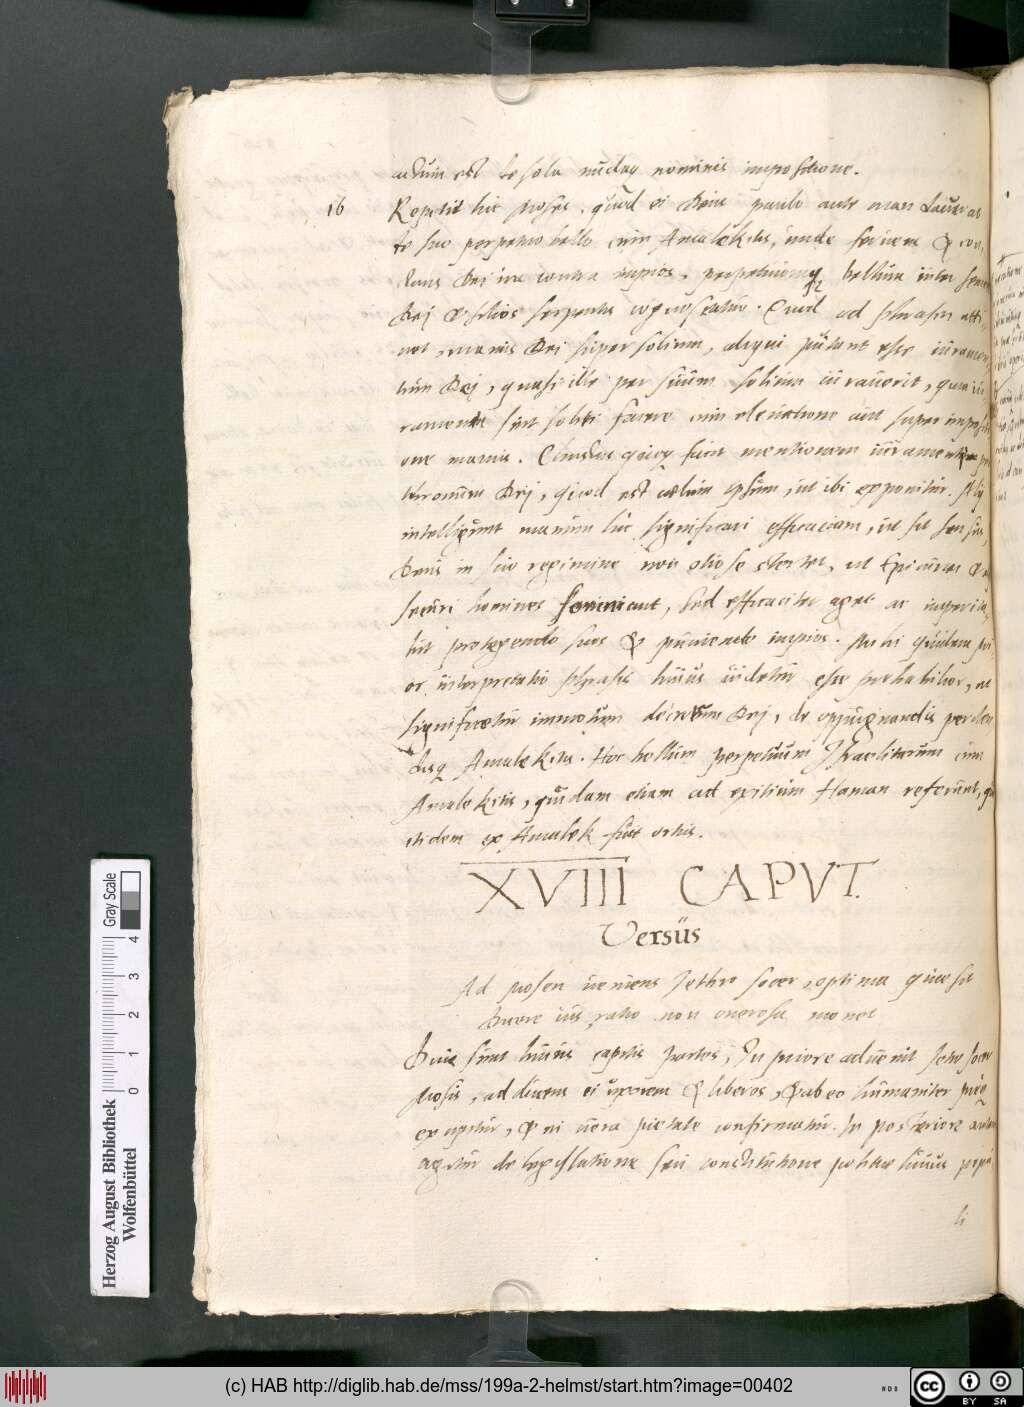 actum est de sola nudaq nominis impositione.
16 Repetit hic Moses, quod ei Deus paulo ante mandauerat
de suo perpetuo bello cum Amalekitis, unde seuera & con,
stans Dei ira contra impios, perpetuumq bellum inter semen
Dej & filios serpentis cognoscatur. Quod ad phrasin atti-
net, manus Dei super solium, aliqui putant esse iuramen,
tum Dej, quasi ille per suum solium iurauerit, quia iu-
ramenta sint soliti facere cum eleuatione aut super imposit
one manus. Christus quoq facit mentionem iuramenti per
thronum Dej, quod est cœlum ipsum, ut ibi exponitur. Alij
intelligunt manum hic significari efficaciam, ut sit sensus,
Deus in suo regimine non otiose stertet, ut Epicurei &
securi homines somniant, sed efficaciter aget ac imperita,
bit protegendo suos & puniendo impios. At hi quidem pri-
or interpretatio phrasis huius uidetur esse probabilior, ut
significetur immotum decretum Dej, de oppugnandis perden
disq Amalekitis. Hoc bellum perpetuum Israelitarum cum
Amalekitis, quidam etiam ad exitium Haman referunt, qui
itidem ex Amalek fuit ortus.
XVIII CAPUT.
Versus
Ad Mosen ueniens Jethro socer, optima quæ sit
Ducere ius ratio non onerosa monet
Duæ sunt huius capitis partes, In priore aduenit Jetro socer
Mosis, adducens ei uxorem & liberos, & ab eo humaniter pieq
excipitur, & in uera pietate confirmatur. In posteriore autem
agitur de legislatione seu constitutione politiæ huius popu
li
Gray Scale
0 1 2 3 4
Herzog August Bibliothek
Wolfenbüttel
(c) HAB http://diglib.hab.de/mss/199a-2-helmst/start.htm?image=00402
cc BY SA